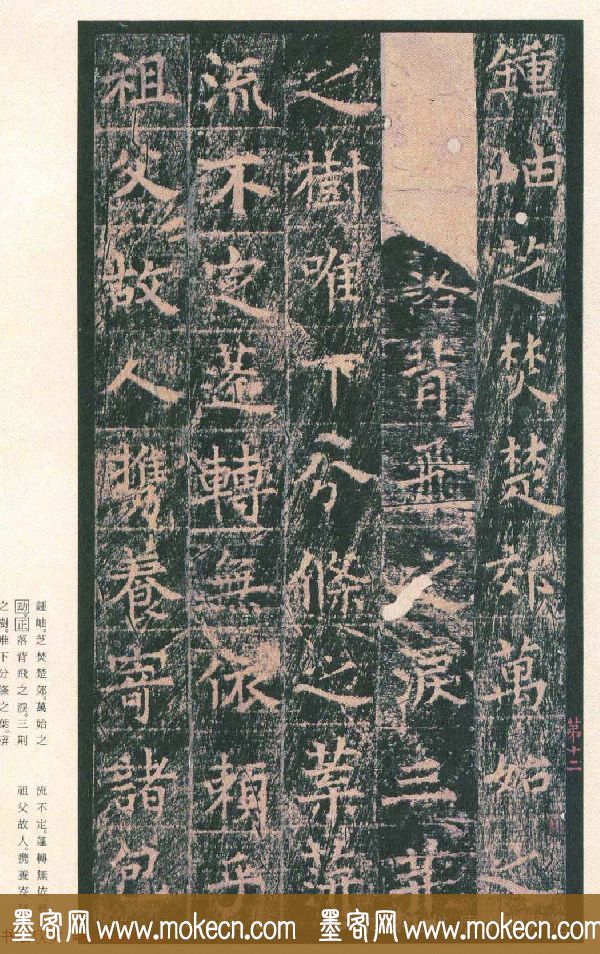 鍾岫芝焚楚郊萬始之
落背飛之淚三荊
之樹唯下分條之葉蓱
流不定蓬轉無依賴乎
祖父故人攜養寄諸
第十二
鍾岫。芝焚楚郊。萬始之
劫。正落背飛之淚。三荊
之樹。唯下分條之葉。蓱
流不定。蓬轉無依
祖父故人。携養寄
墨客网 www.mokecn.com 墨客网 www.mokecn.com